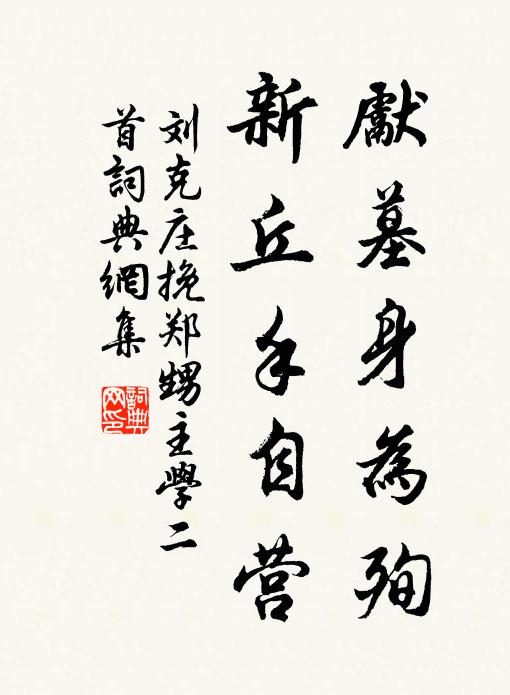 獻墓身為殉
新丘手自营
刘克庄挽郑甥主學二
首詞典網集
詞典
网印